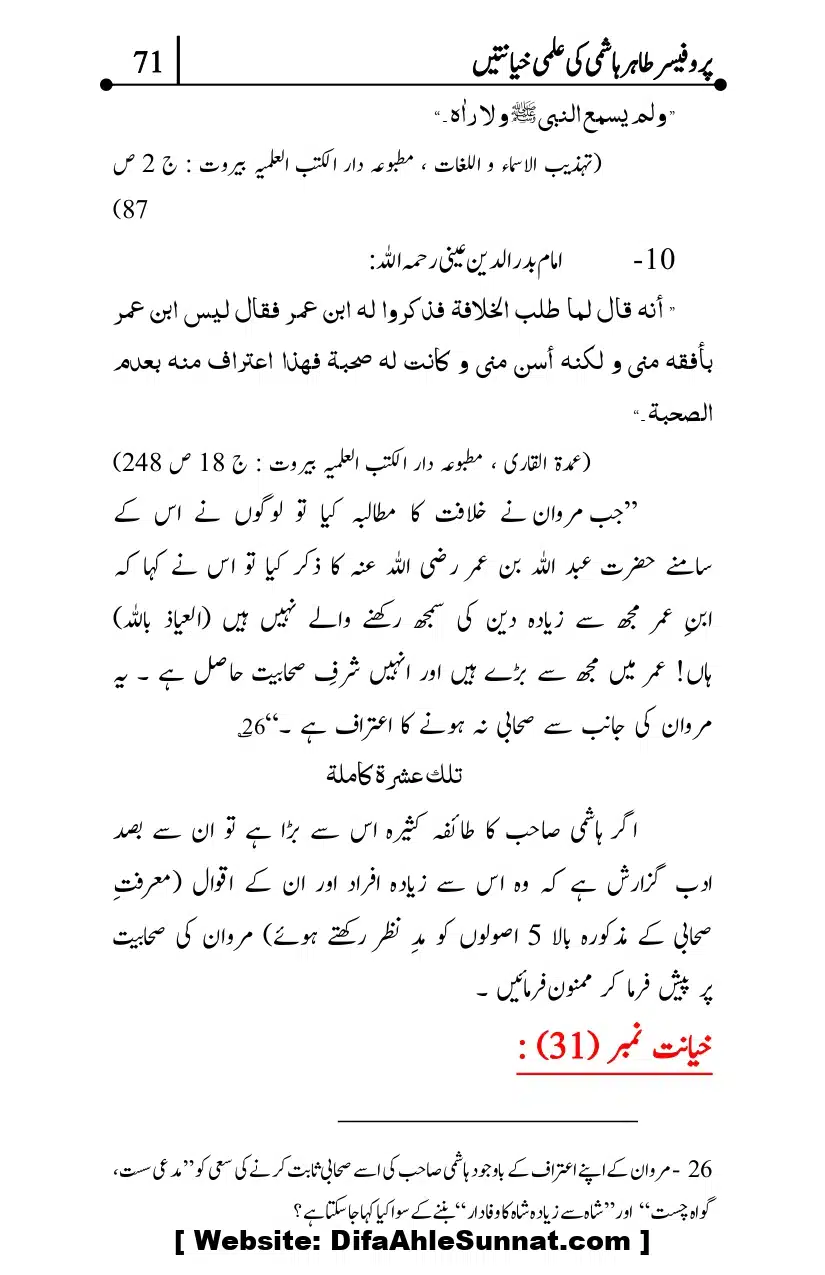 پروفیسر طاہر ہاشمی کی علمی خیانتیں 71
”ولم یسمع النبی ﷺ ولا راٰہ۔“
(تہذیب الاسماء و اللغات ، مطبوعہ دار الکتب العلمیہ بیروت : ج 2 ص
87)
10- امام بدر الدین عینی رحمہ اللہ:
” أنه قال لما طلب الخلافة فذكروا له ابن عمر فقال ليس ابن عمر
بأفقه منی و لکنه أسن منی و کانت له صحبة فهذا اعتراف منه بعدم
الصحبة۔“
(عمدۃ القاری ، مطبوعہ دار الکتب العلمیہ بیروت : ج 18 ص 248)
”جب مروان نے خلافت کا مطالبہ کیا تو لوگوں نے اس کے
سامنے حضرت عبد اللہ بن عمر رضی اللہ عنہ کا ذکر کیا تو اس نے کہا کہ
ابنِ عمر مجھ سے زیادہ دین کی سمجھ رکھنے والے نہیں ہیں (العیاذ باللہ)
ہاں! عمر میں مجھ سے بڑے ہیں اور انہیں شرفِ صحابیت حاصل ہے ۔ یہ
مروان کی جانب سے صحابی نہ ہونے کا اعتراف ہے ۔“26؎
تلك عشرة كاملة
اگر ہاشمی صاحب کا طائفہ کثیرہ اس سے بڑا ہے تو ان سے بصد
ادب گزارش ہے کہ وہ اس سے زیادہ افراد اور ان کے اقوال (معرفتِ
صحابی کے مذکورہ بالا 5 اصولوں کو مدِ نظر رکھتے ہوئے) مروان کی صحابیت
پر پیش فرما کر ممنون فرمائیں ۔
خیانت نمبر (31) :
26 - مروان کے اپنے اعتراف کے باوجود ہاشمی صاحب کی اسے صحابی ثابت کرنے کی سعی کو ”مدعی سست،
گواہ چست“ اور ”شاہ سے زیادہ شاہ کا وفادار“ بننے کے سوا کیا کہا جا سکتا ہے؟
[ Website: DifaAhleSunnat.com ]